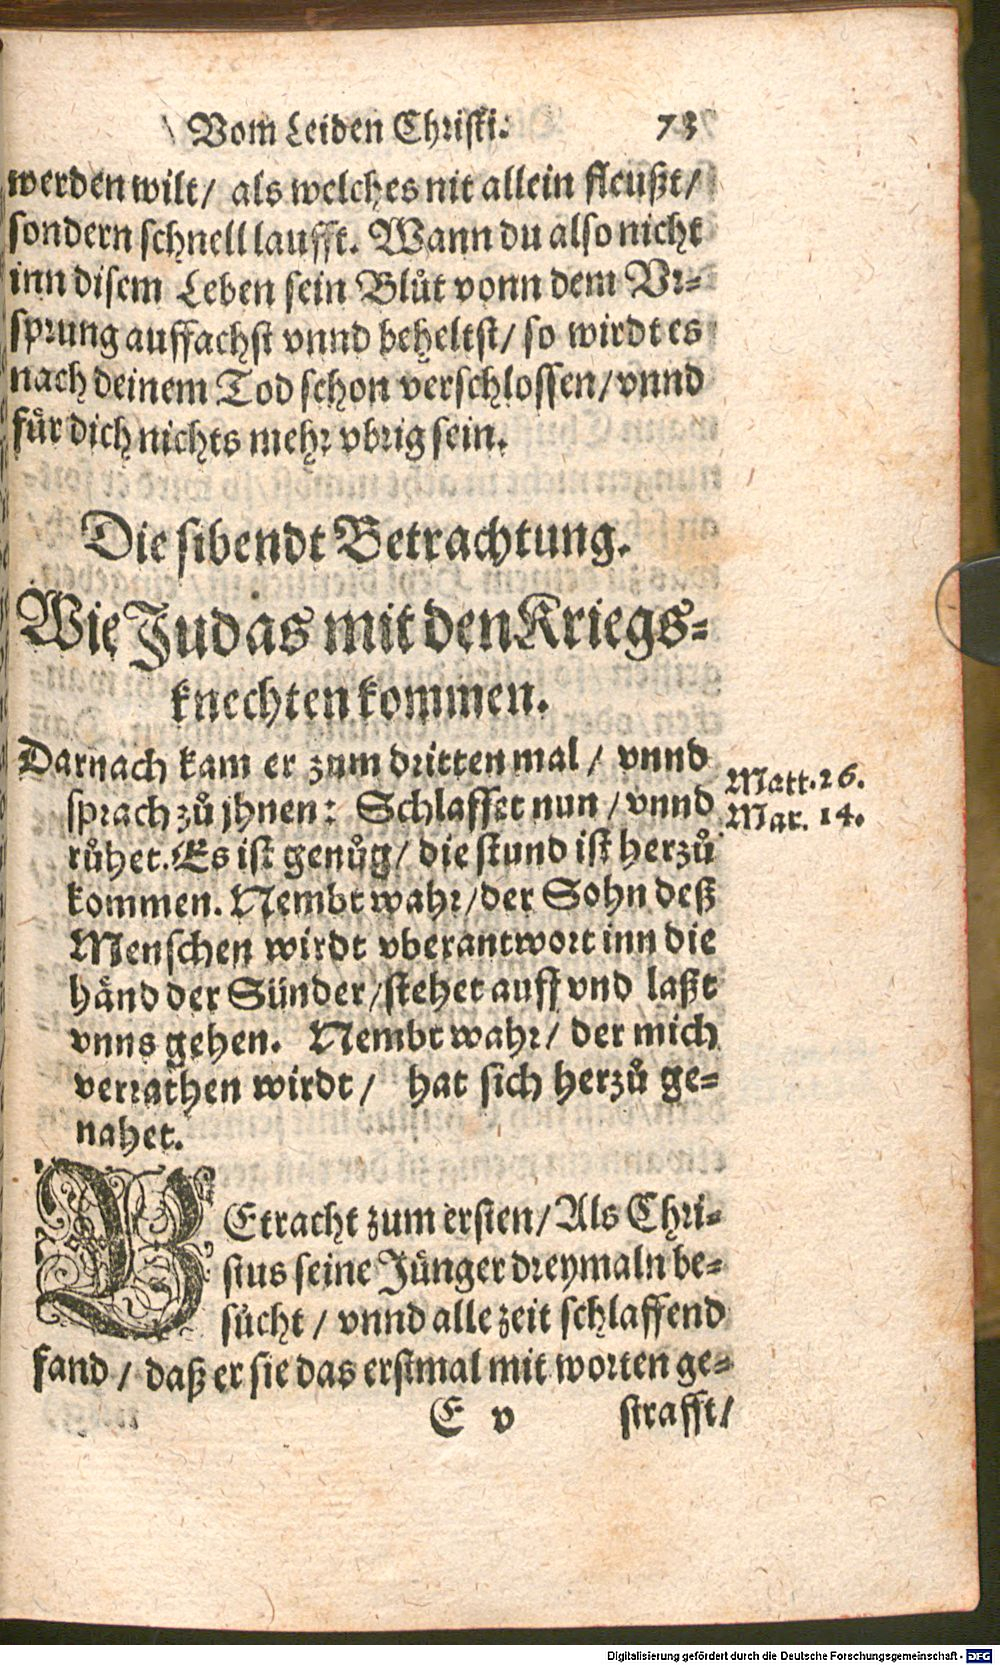 Vom Leiden Christi. 73
werden wilt/ als welches nit allein fleußt/
sondern schnell laufft. Wann du also nicht
inn disem Leben sein Blůt vonn dem Vr-
sprung auffachst vnnd beheltst/ so wirdt es
nach deinem Tod schon verschlossen/ vnnd
fůr dich nichts mehr vbrig sein.
Die sibendt Betrachtung.
Wie Judas mit den Kriegs-
knechten kommen.
Darnach kam er zum dritten mal/ vnnd
sprach zů jhnen: Schlaffet nun/ vnnd
růhet. Es ist genůg/ die stund ist herzů
kommen. Nembt wahr/ der Sohn deß
Menschen wirdt vberantwort inn die
hånd der Sünder/ stehet auff vnd laßt
vnns gehen. Nembt wahr/ der mich
verrathen wirdt/ hat sich herzů ge-
nahet.
Matt. 26.
Mar. 14.
BEtracht zum ersten/ Als Chri-
stus seine Jünger dreymaln be-
sůcht/ vnnd alle zeit schlaffend
fand/ daß er sie das erstmal mit worten ge-
E v strafft/
Digitalisierung gefördert durch die Deutsche Forschungsgemeinschaft - DFG